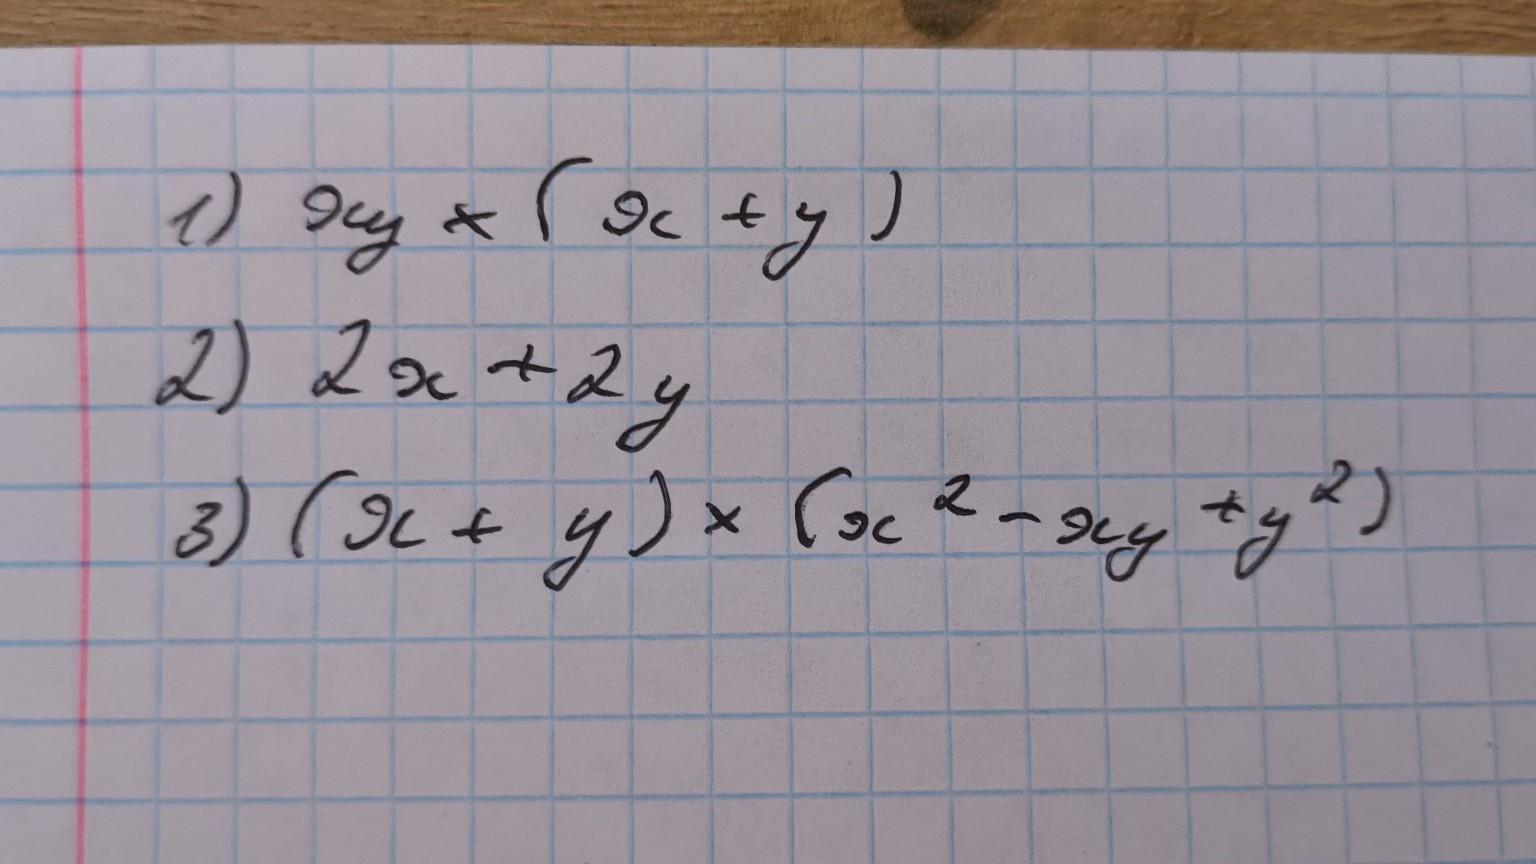 1) xy × (x + y)
2) 2x + 2y
3) (x + y) × (x² - xy + y²)